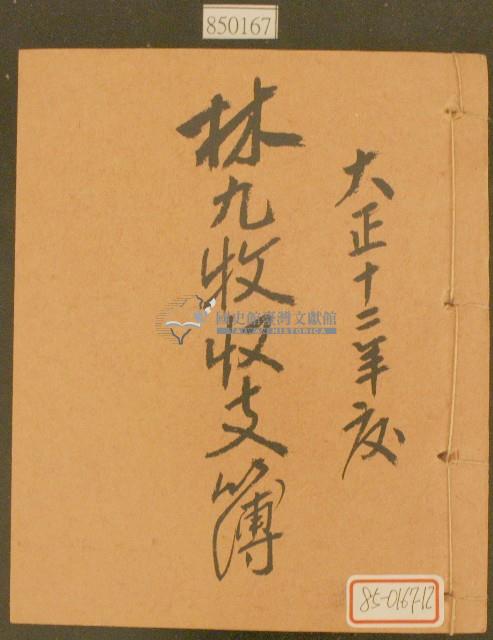 850167
大正十二年度
林九牧收支簿
國史館臺灣文獻館
TAIWAN HISTORICA
85-0167-12